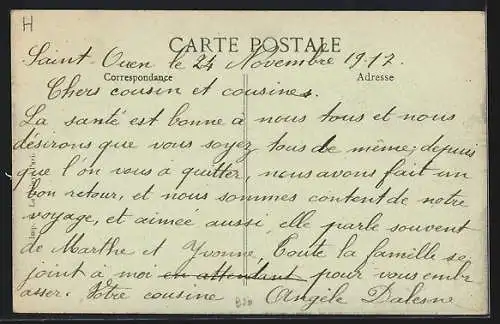 H
CARTE POSTALE
Saint-Ouen le 24 Novembre 1917
Correspondance
Adresse
Chers cousin et cousines.
La santé est bonne à nous tous et nous
désirons que vous soyez tous de même; depuis
que l'on vous a quitter, nous avons fait un
bon retour, et nous sommes content de notre
voyage, et aimée aussi, elle parle souvent
de Marthe et Yvonne, Toute la famille se
joint à moi en attendant pour vous embr
asser. Votre cousine Angèle